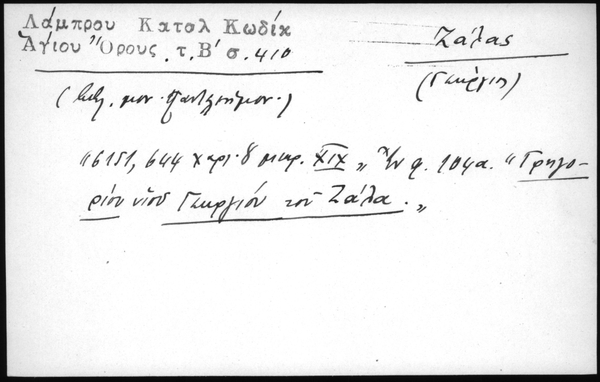 Λάμπρου Κατσλ Κωδίκ
Ἁγίου Ὄρους. τ. Β' σ. 410
Ζάλας
(Γεώργιος)
(βιβ. μον. Παντελεήμον.)
"6151, 644 χαρτ. 8 μικρ. XIX „ Ἐν φ. 104α. "Γρηγο-
ρίου υἱοῦ Γεωργίου τοῦ Ζάλα. „